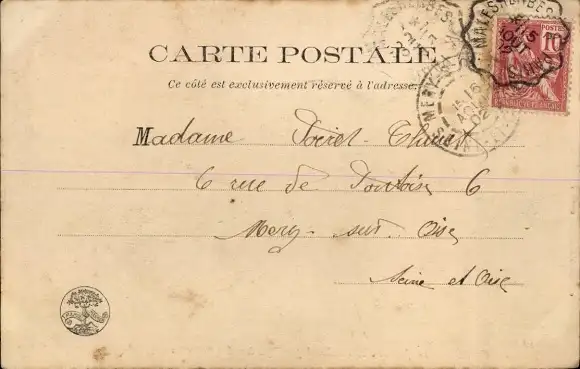 CARTE POSTALE
Ce côté est exclusivement réservé à l'adresse.
Madame Poiret-Thuret
6 rue de Pontoise 6
Mery-sur-Oise
Seine et Oise
MALESHERBES
MALESHERBES
POSTES
10
MERY-S
15
16
AOUT
02